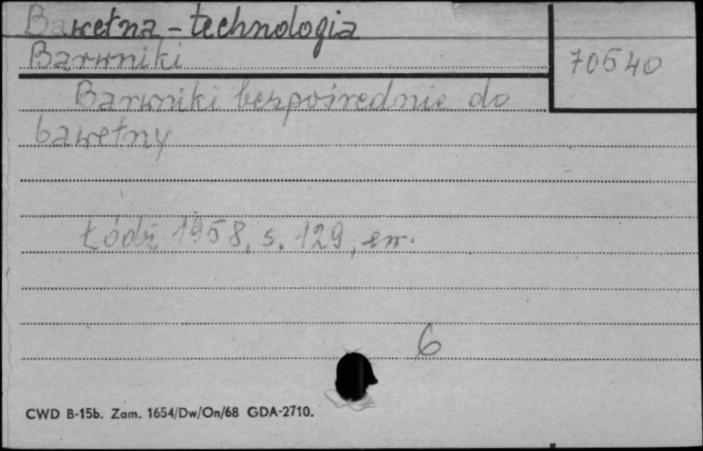 Bawełna - technologia
Barwniki
70540
Barwniki bezpośrednie do
bawełny
Łódź 1958, s. 129, err.
6
CWD B-15b. Zam. 1654/Dw/On/68 GDA-2710.